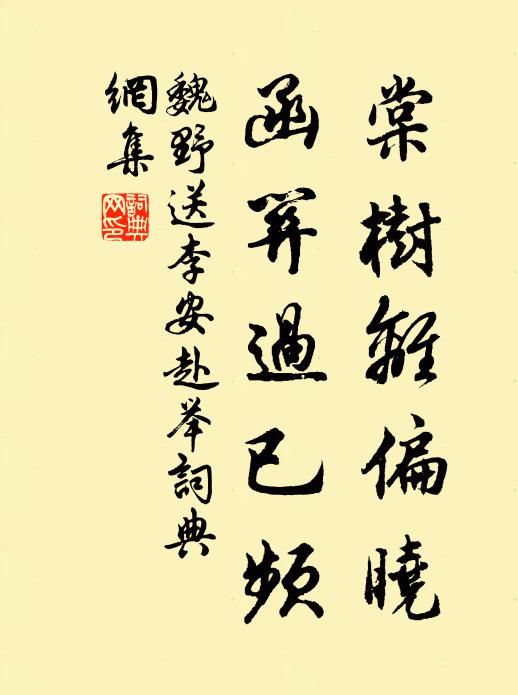 棠樹離偏曉
函关過已頻
魏野送李安赴举詞典
網集
詞典网印